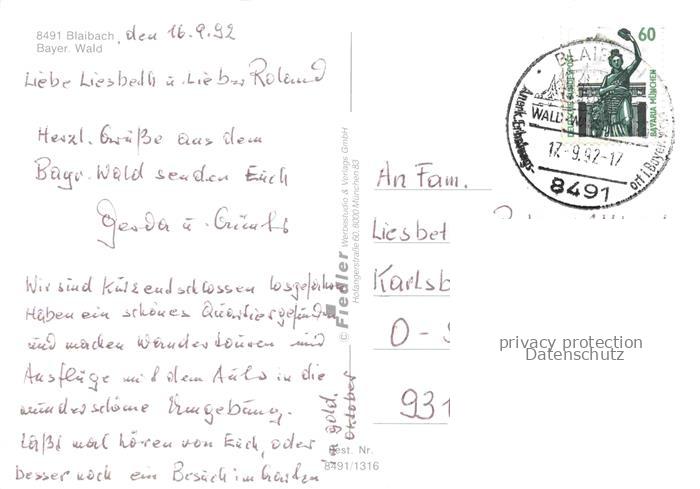 8491 Blaibach, den 16.9.92
Bayer. Wald
Liebe Liesbeth u. Lieber Roland
Herzl. Grüße aus dem
Bayr. Wald senden Euch
Gerda u.
Wir sind kurzendschlossen losgefahren
Haben ein schönes Quartier gefunden
und machen Wandertouren und
Ausflüge mit dem Auto in die
wunderschöne Umgebung.
Laßt mal hören von Euch, oder
besser noch ein Besuch im Garten
im gold.
Oktober
© Fiedler Werbestudio & Verlags GmbH
Hofangerstraße 60, 8000 München 83
Best. Nr.
8491/1316
60
DEUTSCHE BUNDESPOST
BAVARIA MÜNCHEN
BLAIB
WALD
17.-9.92-17
8491
Anerk. Erholungs-
ort i. Bayer.
An Fam.
Liesbet
Karlsb
O-
931
privacy protection
Datenschutz